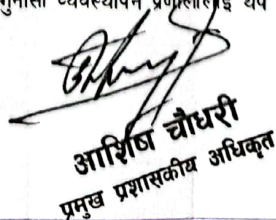 व्यवस्थापन प्रणालीलाई थप
आशिष चौधरी
प्रमुख प्रशासकीय अधिकृत